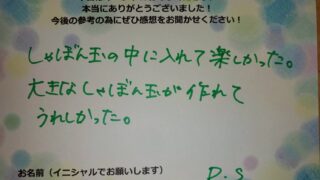 本当にありがとうございました!
今後の参考の為にぜひ感想をお聞かせください!
しゃぼん玉の中に入れて楽しかった。
大きなしゃぼん玉が作れて
うれしかった。
お名前(イニシャルでお願いします)
D.S